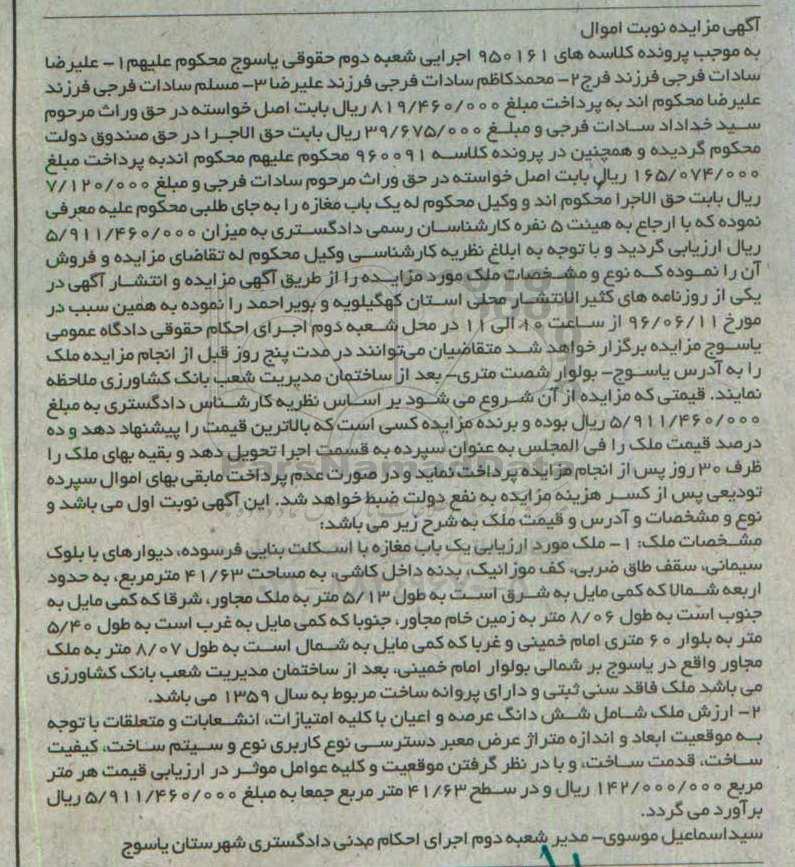 آگهی مزایده نوبت اموال
به موجب پرونده کلاسه های ۹۵۰۱۶۱ اجرایی شعبه دوم حقوقی یاسوج محکوم علیهم۱- علیرضا
سادات فرجی فرزند فرج۲- محمدکاظم سادات فرجی فرزند علیرضا ۳- مسلم سادات فرجی فرزند
علیرضا محکوم اند به پرداخت مبلغ ۸۱۹/۴۶۰/۰۰۰ ریال بابت اصل خواسته در حق وراث مرحوم
سید خداداد سادات فرجی و مبلغ ۳۹/۶۷۵/۰۰۰ ریال بابت حق الاجرا در حق صندوق دولت
محکوم گردیده و همچنین در پرونده کلاسه ۹۶۰۰۹۱ محکوم علیهم محکوم اندبه پرداخت مبلغ
۱۶۵/۰۷۴/۰۰۰ ریال بابت اصل خواسته در حق وراث مرحوم سادات فرجی و مبلغ ۷/۱۲۰/۰۰۰
ریال بابت حق الاجرا محکوم اند و وکیل محکوم له یک باب مغازه را به جای طلبی محکوم علیه معرفی
نموده که با ارجاع به هیئت ۵ نفره کارشناسان رسمی دادگستری به میزان ۵/۹۱۱/۴۶۰/۰۰۰
ریال ارزیابی گردید و با توجه به ابلاغ نظریه کارشناسی وکیل محکوم له تقاضای مزایده و فروش
آن را نموده که نوع و مشخصات ملک مورد مزایده را از طریق آگهی مزایده و انتشار آگهی در
یکی از روزنامه های کثیرالانتشار محلی استان کهگیلویه و بویراحمد را نموده به همین سبب در
مورخ ۹۶/۰۶/۱۱ از ساعت ۱۰ الی ۱۱ در محل شعبه دوم اجرای احکام حقوقی دادگاه عمومی
یاسوج مزایده برگزار خواهد شد متقاضیان می‌توانند در مدت پنج روز قبل از انجام مزایده ملک
را به آدرس یاسوج- بولوار شصت متری- بعد از ساختمان مدیریت شعب بانک کشاورزی ملاحظه
نمایند. قیمتی که مزایده از آن شروع می شود بر اساس نظریه کارشناس دادگستری به مبلغ
۵/۹۱۱/۴۶۰/۰۰۰ ریال بوده و برنده مزایده کسی است که بالاترین قیمت را پیشنهاد دهد و ده
درصد قیمت ملک را فی المجلس به عنوان سپرده به قسمت اجرا تحویل دهد و بقیه بهای ملک را
ظرف ۳۰ روز پس از انجام مزایده پرداخت نماید و در صورت عدم پرداخت مابقی بهای اموال سپرده
تودیعی پس از کسر هزینه مزایده به نفع دولت ضبط خواهد شد. این آگهی نوبت اول می باشد و
نوع و مشخصات و آدرس و قیمت ملک به شرح زیر می باشد:
مشخصات ملک: ۱- ملک مورد ارزیابی یک باب مغازه با اسکلت بنایی فرسوده، دیوارهای با بلوک
سیمانی، سقف طاق ضربی، کف موزائیک، بدنه داخل کاشی، به مساحت ۴۱/۶۳ مترمربع، به حدود
اربعه شمالا که کمی مایل به شرق است به طول ۵/۱۳ متر به ملک مجاور، شرقا که کمی مایل به
جنوب است به طول ۸/۰۶ متر به زمین خام مجاور، جنوبا که کمی مایل به غرب است به طول ۵/۴۰
متر به بلوار ۶۰ متری امام خمینی و غربا که کمی مایل به شمال است به طول ۸/۰۷ متر به ملک
مجاور واقع در یاسوج بر شمالی بولوار امام خمینی، بعد از ساختمان مدیریت شعب بانک کشاورزی
می باشد ملک فاقد سنی ثبتی و دارای پروانه ساخت مربوط به سال ۱۳۵۹ می باشد.
۲- ارزش ملک شامل شش دانگ عرصه و اعیان با کلیه امتیازات، انشعابات و متعلقات با توجه
به موقعیت ابعاد و اندازه متراژ عرض معبر دسترسی نوع کاربری نوع و سیتم ساخت، کیفیت
ساخت، قدمت ساخت، و با در نظر گرفتن موقعیت و کلیه عوامل موثر در ارزیابی قیمت هر متر
مربع ۱۴۲/۰۰۰/۰۰۰ ریال و در سطح ۴۱/۶۳ متر مربع جمعا به مبلغ ۵/۹۱۱/۴۶۰/۰۰۰ ریال
برآورد می گردد.
سیداسماعیل موسوی- مدیر شعبه دوم اجرای احکام مدنی دادگستری شهرستان یاسوج